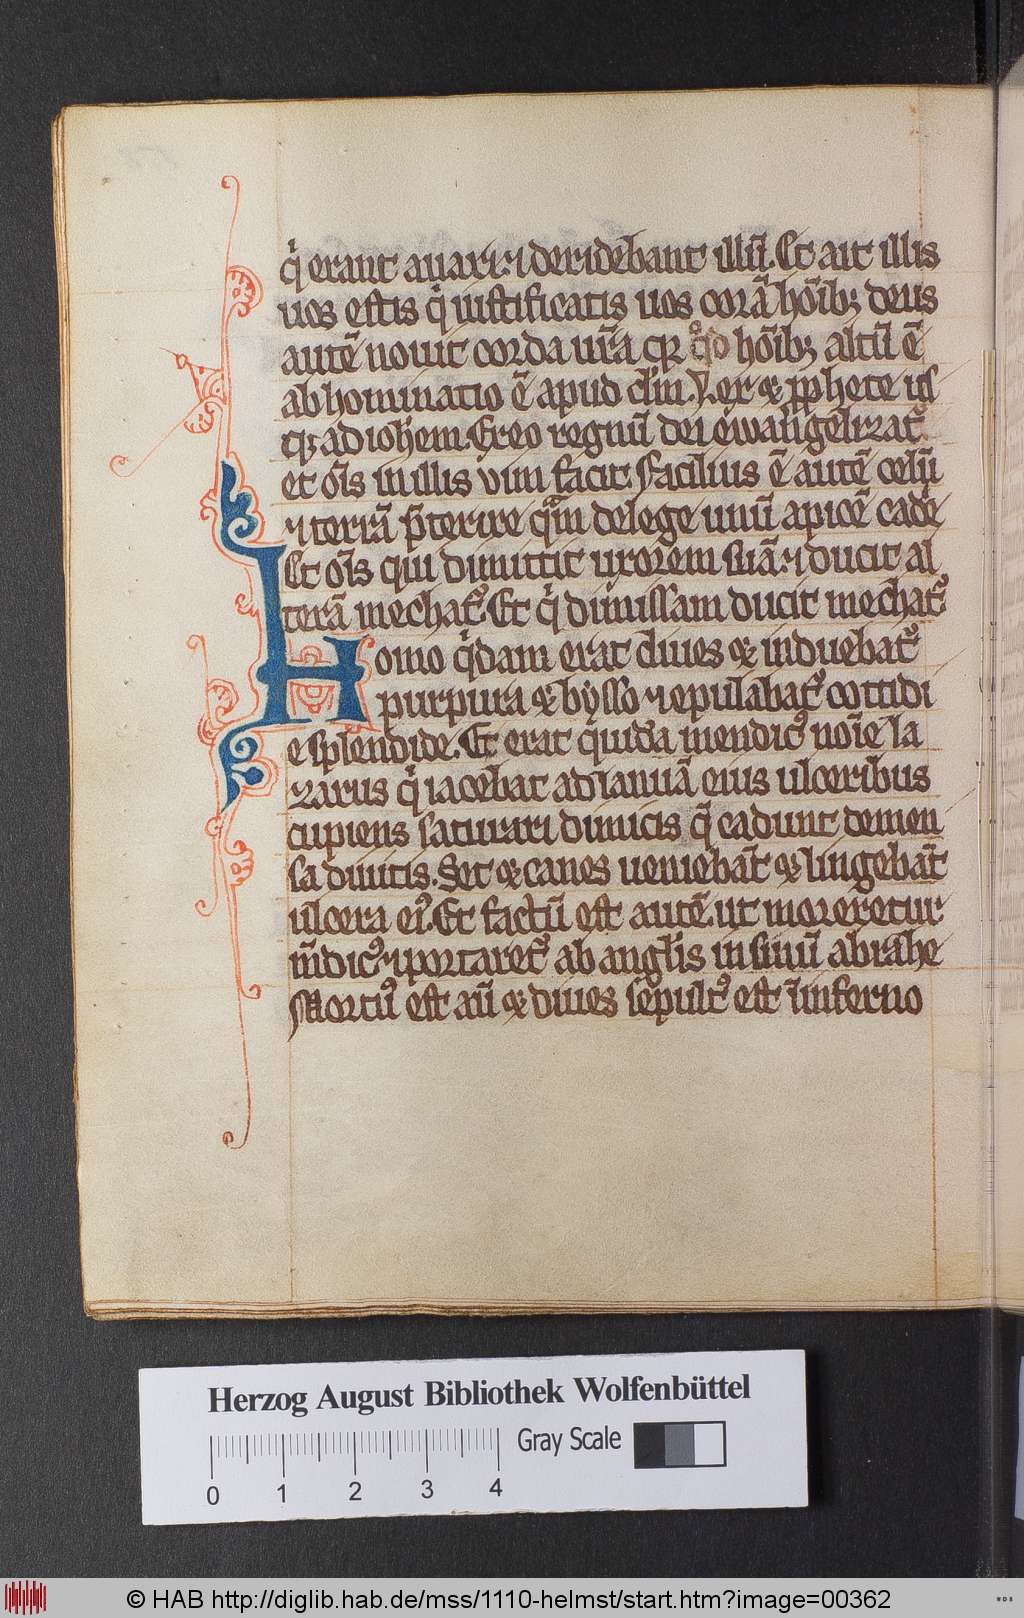 q̇ erant auari ⁊ deridebant illū. Et ait illis
uos estis q̇ iustificatis uos corā hōib; deus
autē nouit corda ur̄a qꝛ qͦd hōib; altū ē
abhominatio ē apud dm̄. Lex & ꝓphete us
q; ad ioh̄em. Ex eo regnū dei ewangelizat᷒.
et oīs in illis vim facit. Facilius ē autē celū
⁊ terrā p̄terire qᵃm de lege unū apicē cad́e
Et oīs qui dimittit uxorem suā ⁊ ducit al
terā mechat᷒. Et q̇ dimissam ducit mechat᷒.
Homo q̇dam erat diues & induebat᷒
purpura & bysso ⁊ epulabat᷒ cottidi
e splendide. Et erat quidā mendic᷒ noīe la
zarus q̇ iacebat ad ianuā eius ulceribus
cupiens saturari de micis q̄ cadunt de men
sa diuitis. Set & canes ueniebāt & lingebāt
ulcera ei᷒. Et factū est autē. ut moreretur
m̄dic᷒ ⁊ portaret᷒ ab angl̄is in sinū abrahe
Mortu᷒ est aū & diues sepult᷒ est ī inferno
Herzog August Bibliothek Wolfenbüttel
Gray Scale
0 1 2 3 4
© HAB http://diglib.hab.de/mss/1110-helmst/start.htm?image=00362